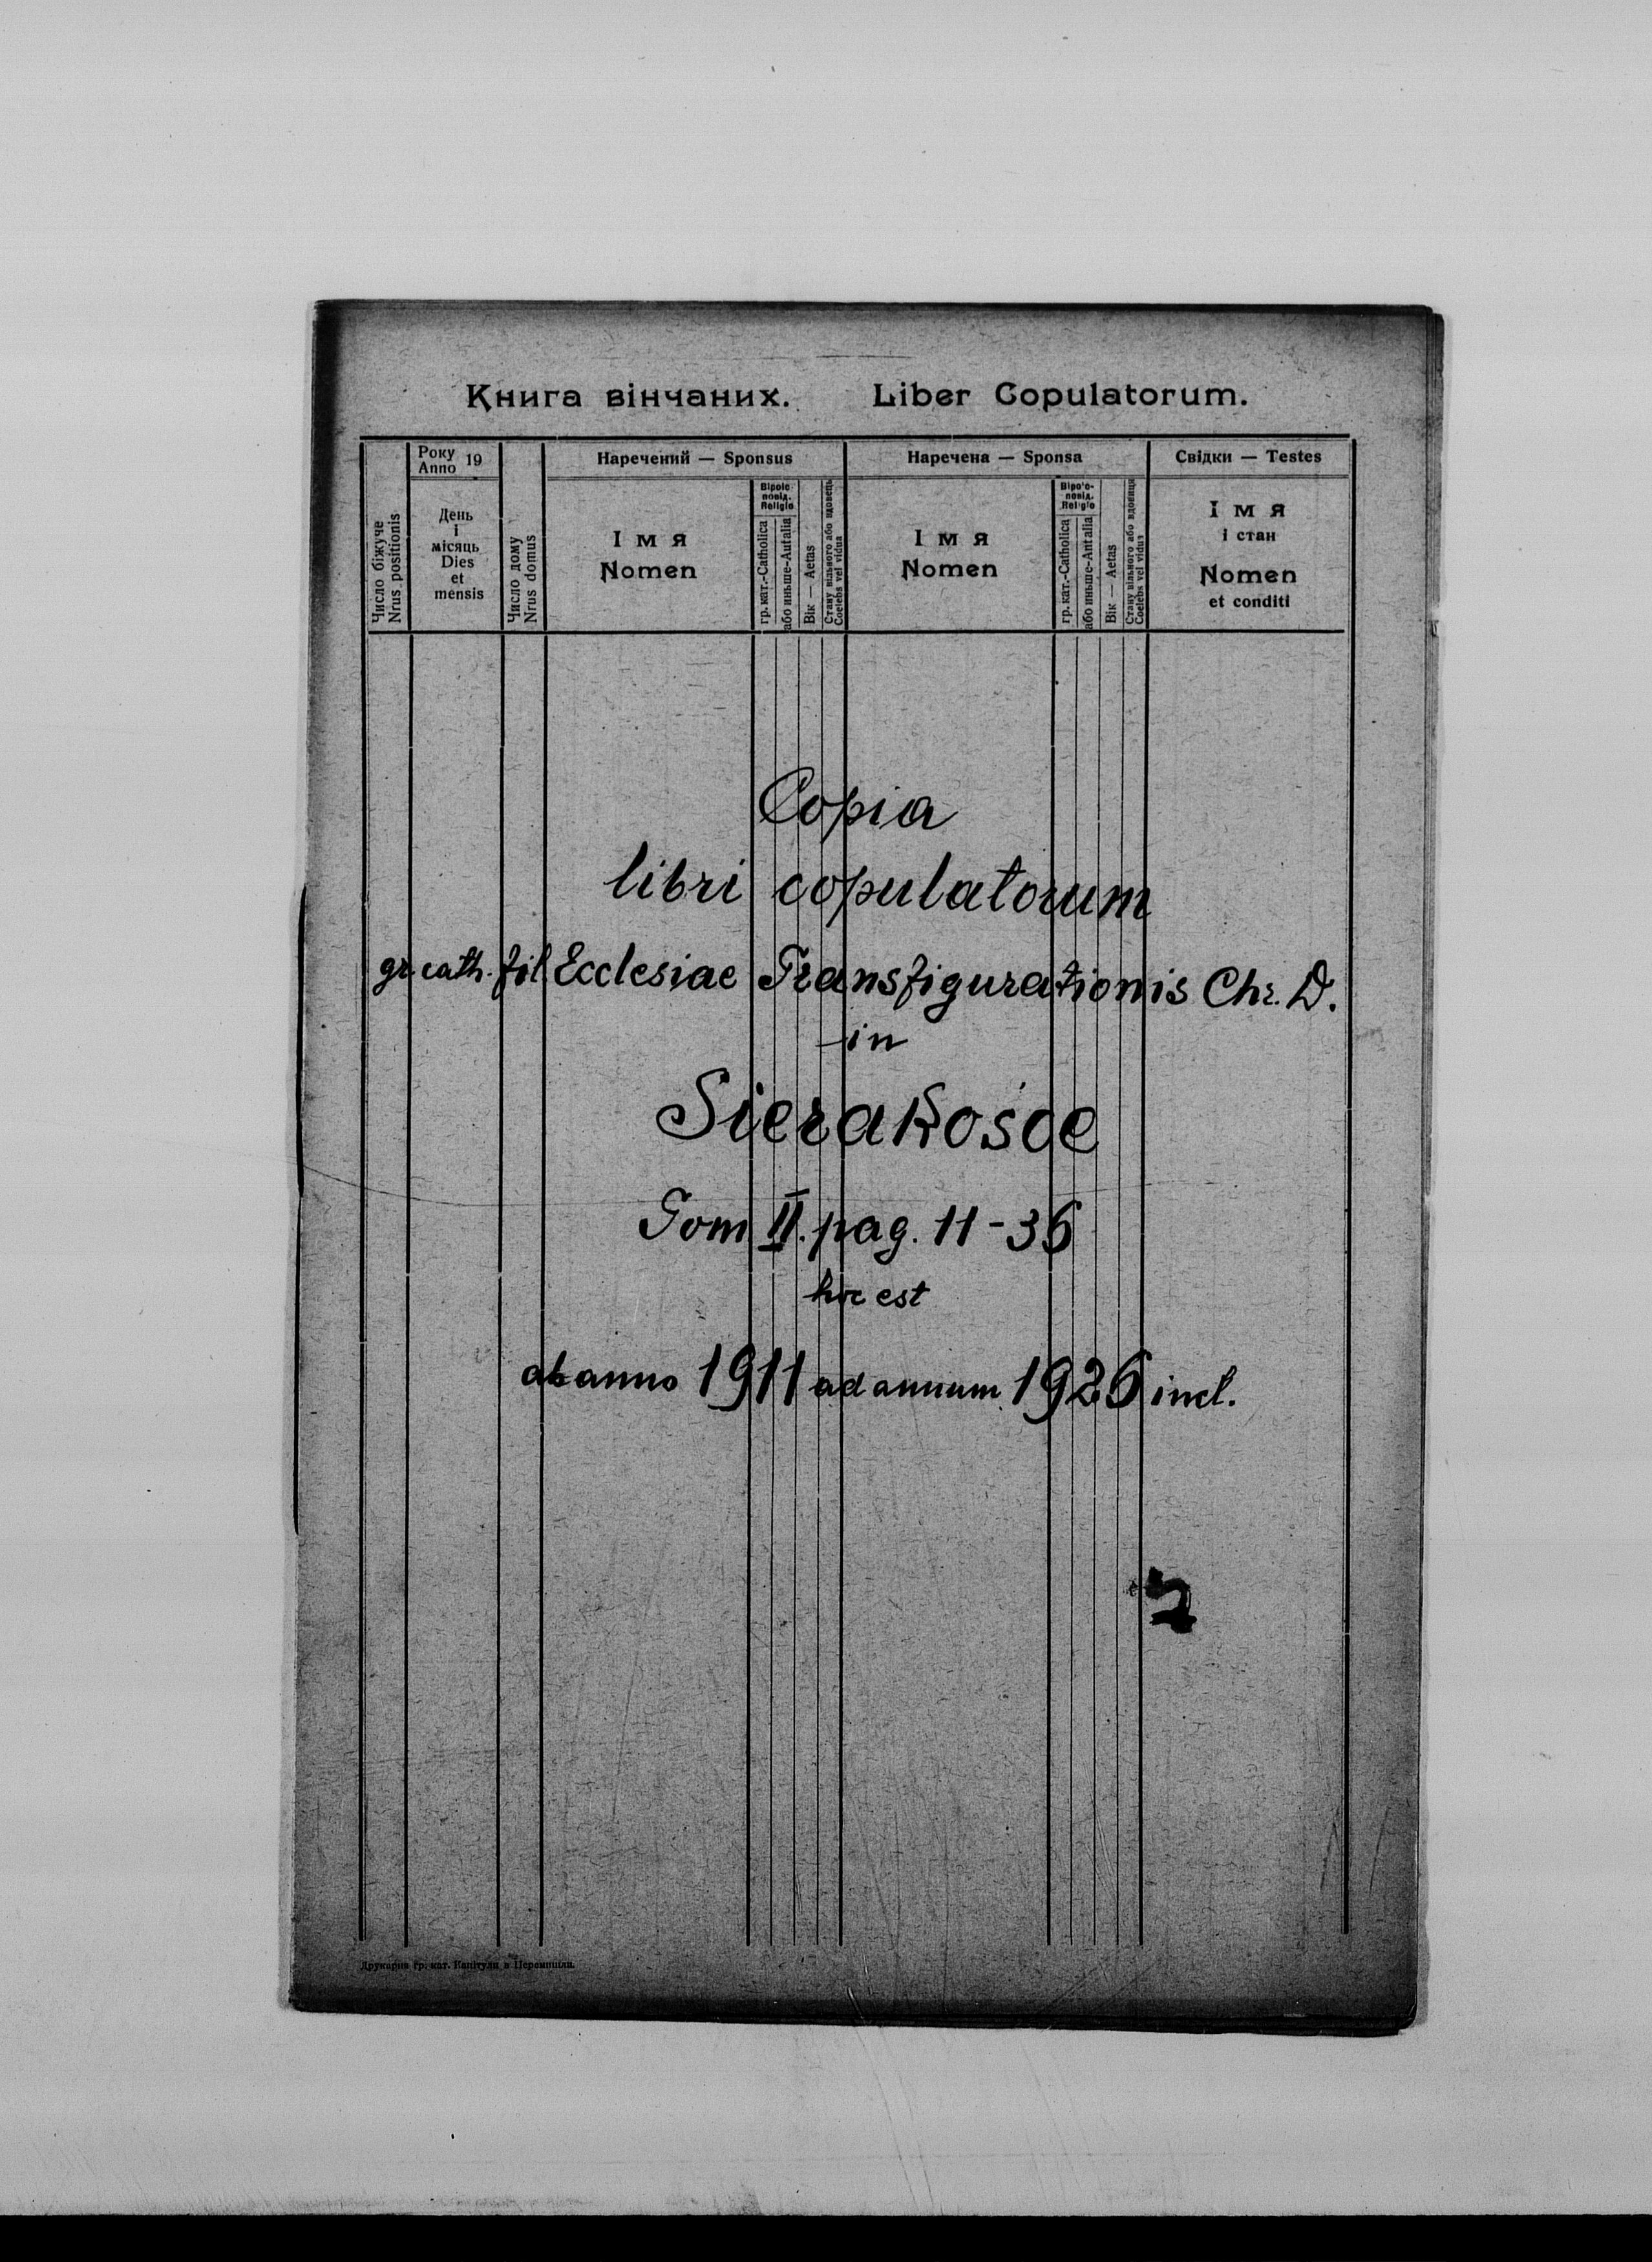 Книга вінчаних. Liber Copulatorum.
Число біжуче
Nrus positionis
Року
Anno 19
День
і
місяць
Dies
et
mensis
Число дому
Nrus domus
Наречений — Sponsus
І м я
Nomen
Віроіс
повід.
Religio
гр. кат.-Catholica
або иньше-Aut alia
Вік — Aetas
Стану вільного або вдовець
Coelebs vel vidua
Наречена — Sponsa
І м я
Nomen
Віро'с-
повід.
Religio
гр. кат.-Catholica
або иньше-Ant alia
Вік — Aetas
Стану вільного або вдовиця
Coelebs vel vidua
Свідки — Testes
І м я
і стан
Nomen
et conditi
Copia
libri copulatorum
gr. cath. fil Ecclesiae Transfigurationis Chr. D.
in
Sierakośce
Tom II. pag. 11-36
hoc est
ab anno 1911 ad annum 1926 incl.
Друкарня гр. кат. Капітули в Перемишли.